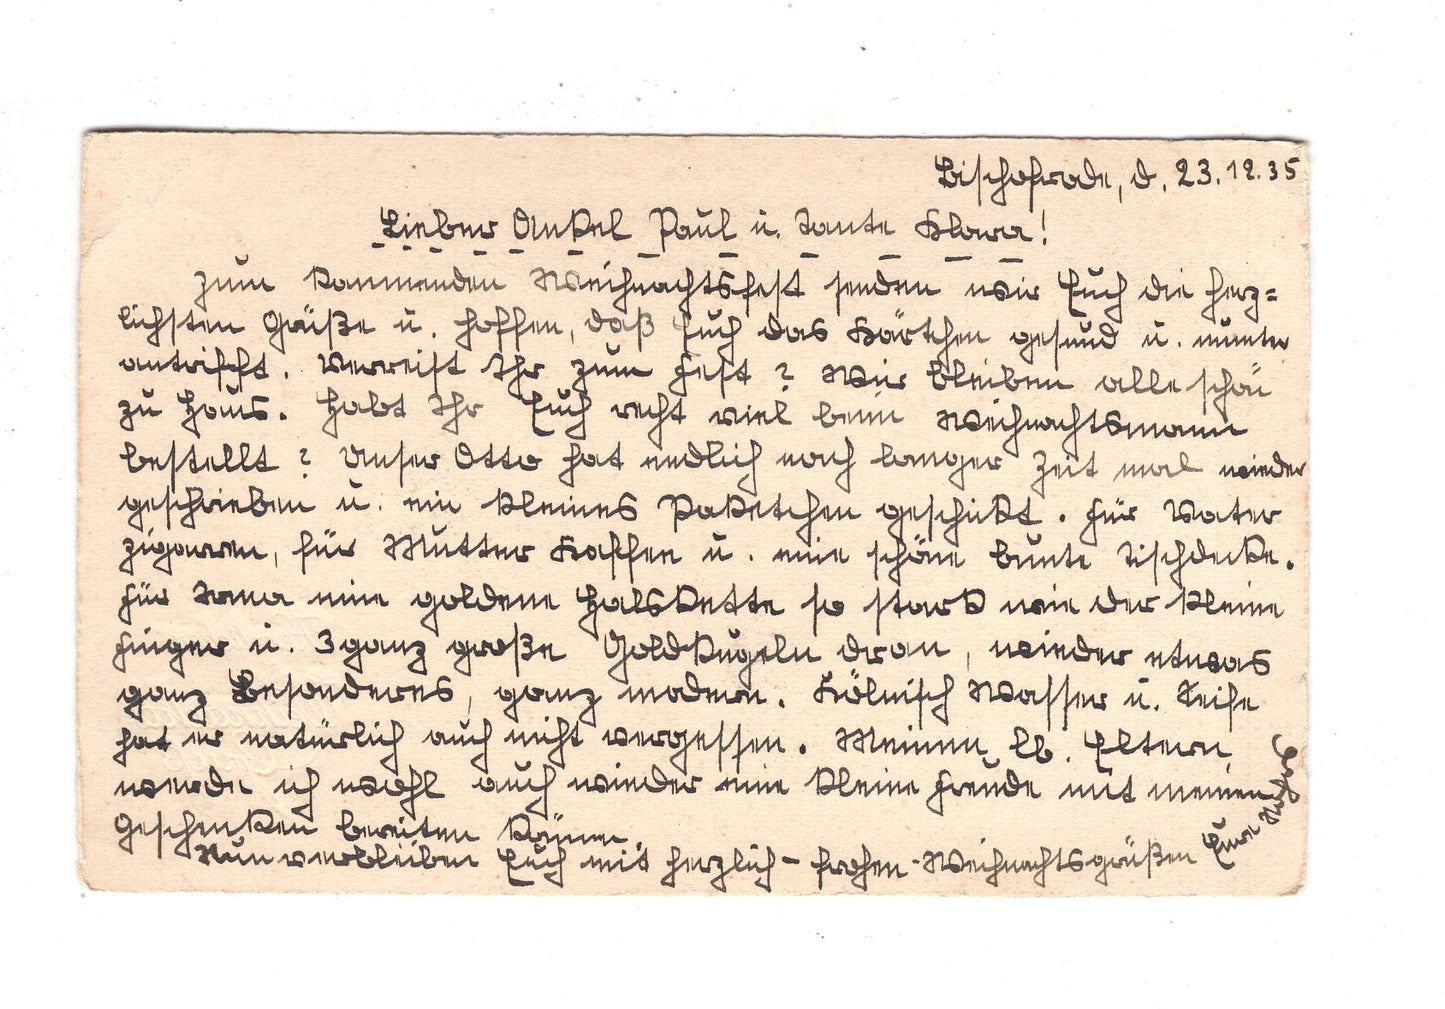 Bischofrode, d. 23.12.35
Lieber Onkel Paul u. Tante Klara!
Zum kommenden Weihnachtsfest senden wir Euch die herz=
lichsten Grüße u. hoffen, daß Euch das Kärtchen gesund u. munter
antrifft. Verreist Ihr zum Fest? Wir bleiben alle schön
zu Haus. Habt Ihr Euch recht viel beim Weihnachtsmann
bestellt? Unser Otto hat endlich nach langer Zeit mal wieder
geschrieben u. ein kleines Paketchen geschickt. Für Vater
Zigarren, für Mutter Kaffee u. eine schöne bunte Tischdecke.
Für Irma eine goldene Halskette so stark wie der kleine
Finger u. 3 ganz große Goldkugeln dran, wieder etwas
ganz Besonderes, ganz modern. Kölnisch Wasser u. Seife
hat er natürlich auch nicht vergessen. Meinen lb. Eltern
werde ich wohl auch wieder eine kleine Freude mit meinen
Geschenken bereiten können.
Nun verbleiben Euch mit herzlich- frohen-Weihnachtsgrüßen Eure